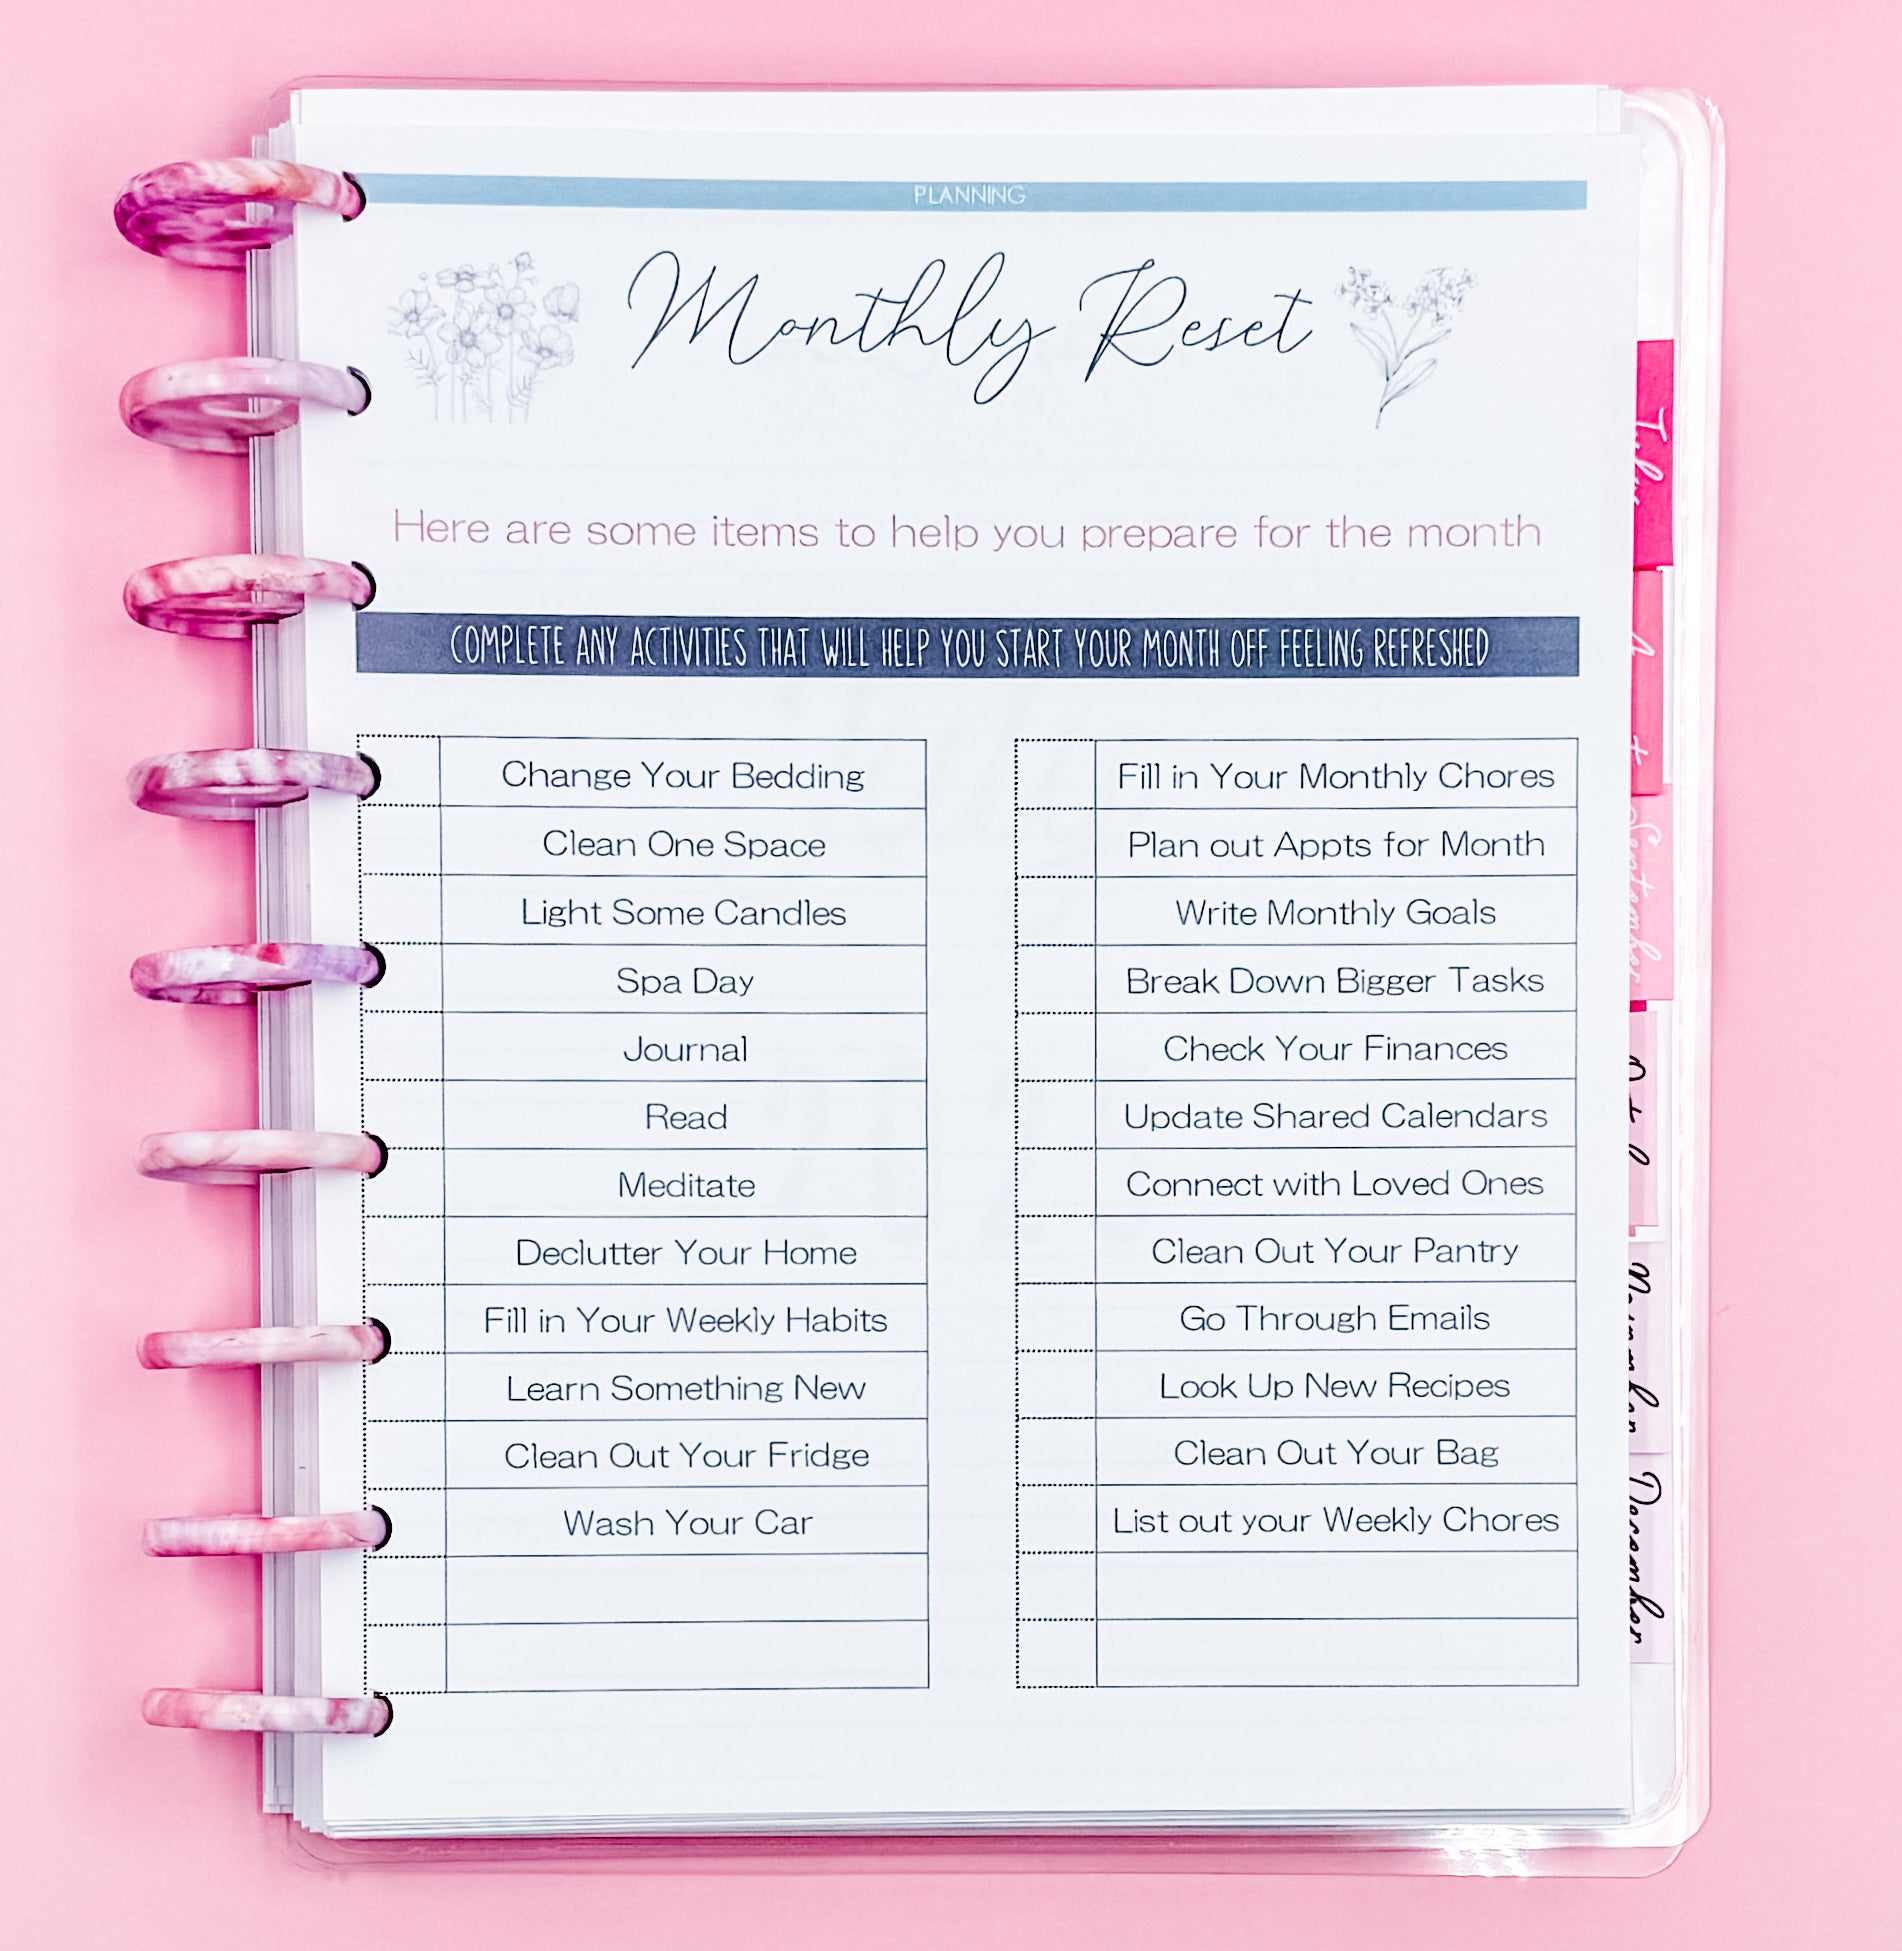 PLANNING
Monthly Reset
Here are some items to help you prepare for the month
COMPLETE ANY ACTIVITIES THAT WILL HELP YOU START YOUR MONTH OFF FEELING REFRESHED
Change Your Bedding
Clean One Space
Light Some Candles
Spa Day
Journal
Read
Meditate
Declutter Your Home
Fill in Your Weekly Habits
Learn Something New
Clean Out Your Fridge
Wash Your Car
Fill in Your Monthly Chores
Plan out Appts for Month
Write Monthly Goals
Break Down Bigger Tasks
Check Your Finances
Update Shared Calendars
Connect with Loved Ones
Clean Out Your Pantry
Go Through Emails
Look Up New Recipes
Clean Out Your Bag
List out your Weekly Chores
July
September
November
December